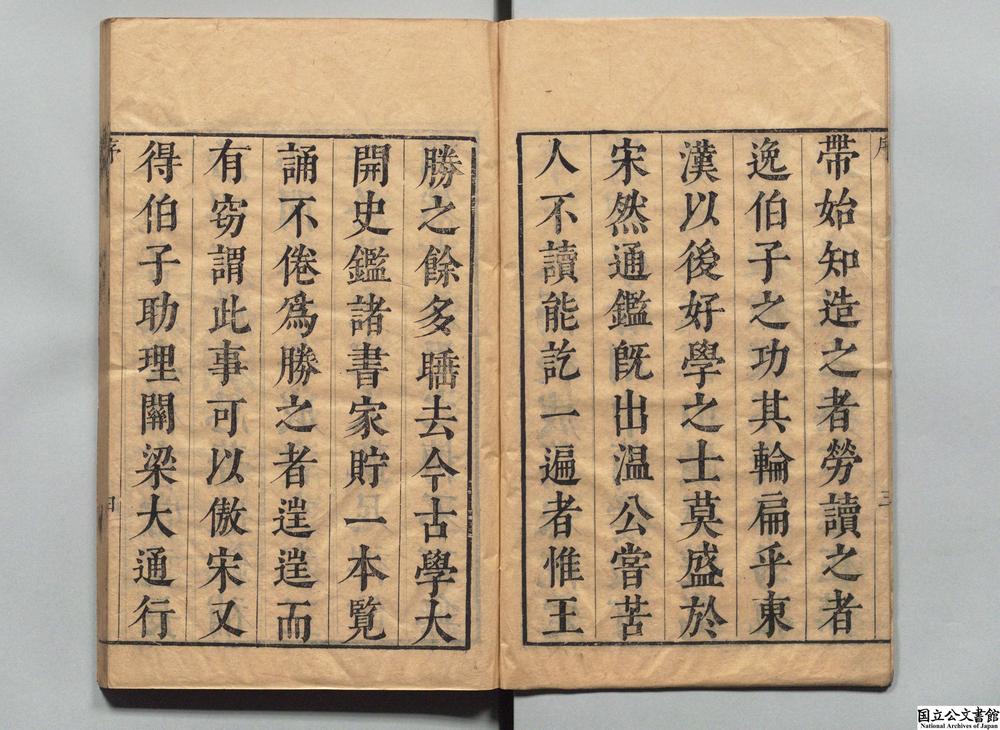 序
三
帶始知造之者勞讀之者
逸伯子之功其輪扁乎東
漢以後好學之士莫盛於
宋然通鑑旣出温公嘗苦
人不讀能訖一遍者惟王
勝之餘多䑛去今古學大
開史鑑諸書家貯一本覽
誦不倦爲勝之者逞逞而
有窃謂此事可以傲宋又
得伯子助理關梁大通行
序
四
国立公文書館
National Archives of Japan